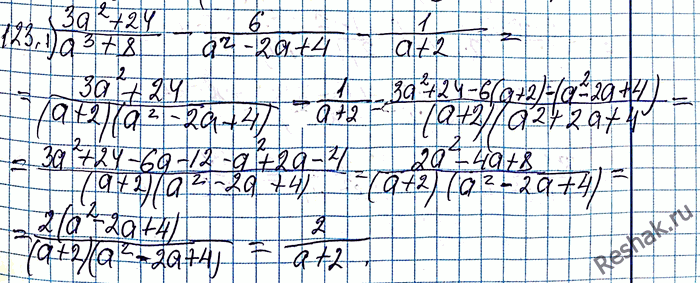 123.1) (3a²+24)/(a³+8) - 6/(a²-2a+4) - 1/(a+2) =
= (3a²+24)/((a+2)(a²-2a+4)) - 1/(a+2) = (3a²+24-6(a+2)-(a²-2a+4))/((a+2)(a²+2a+4 =
= (3a²+24-6a-12-a²+2a-4)/((a+2)(a²-2a+4)) = (2a²-4a+8)/((a+2)(a²-2a+4)) =
= 2(a²-2a+4)/((a+2)(a²-2a+4)) = 2/(a+2).
Reshak.ru